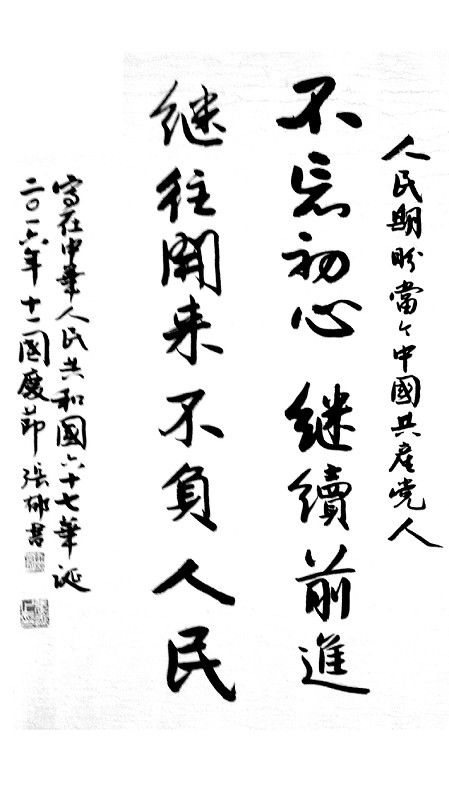 人民期盼當今中國共產党人
不忘初心 继續前進
继往開来不負人民
寫在中華人民共和國六十七華诞
二〇一六年十一國慶節 張郁書